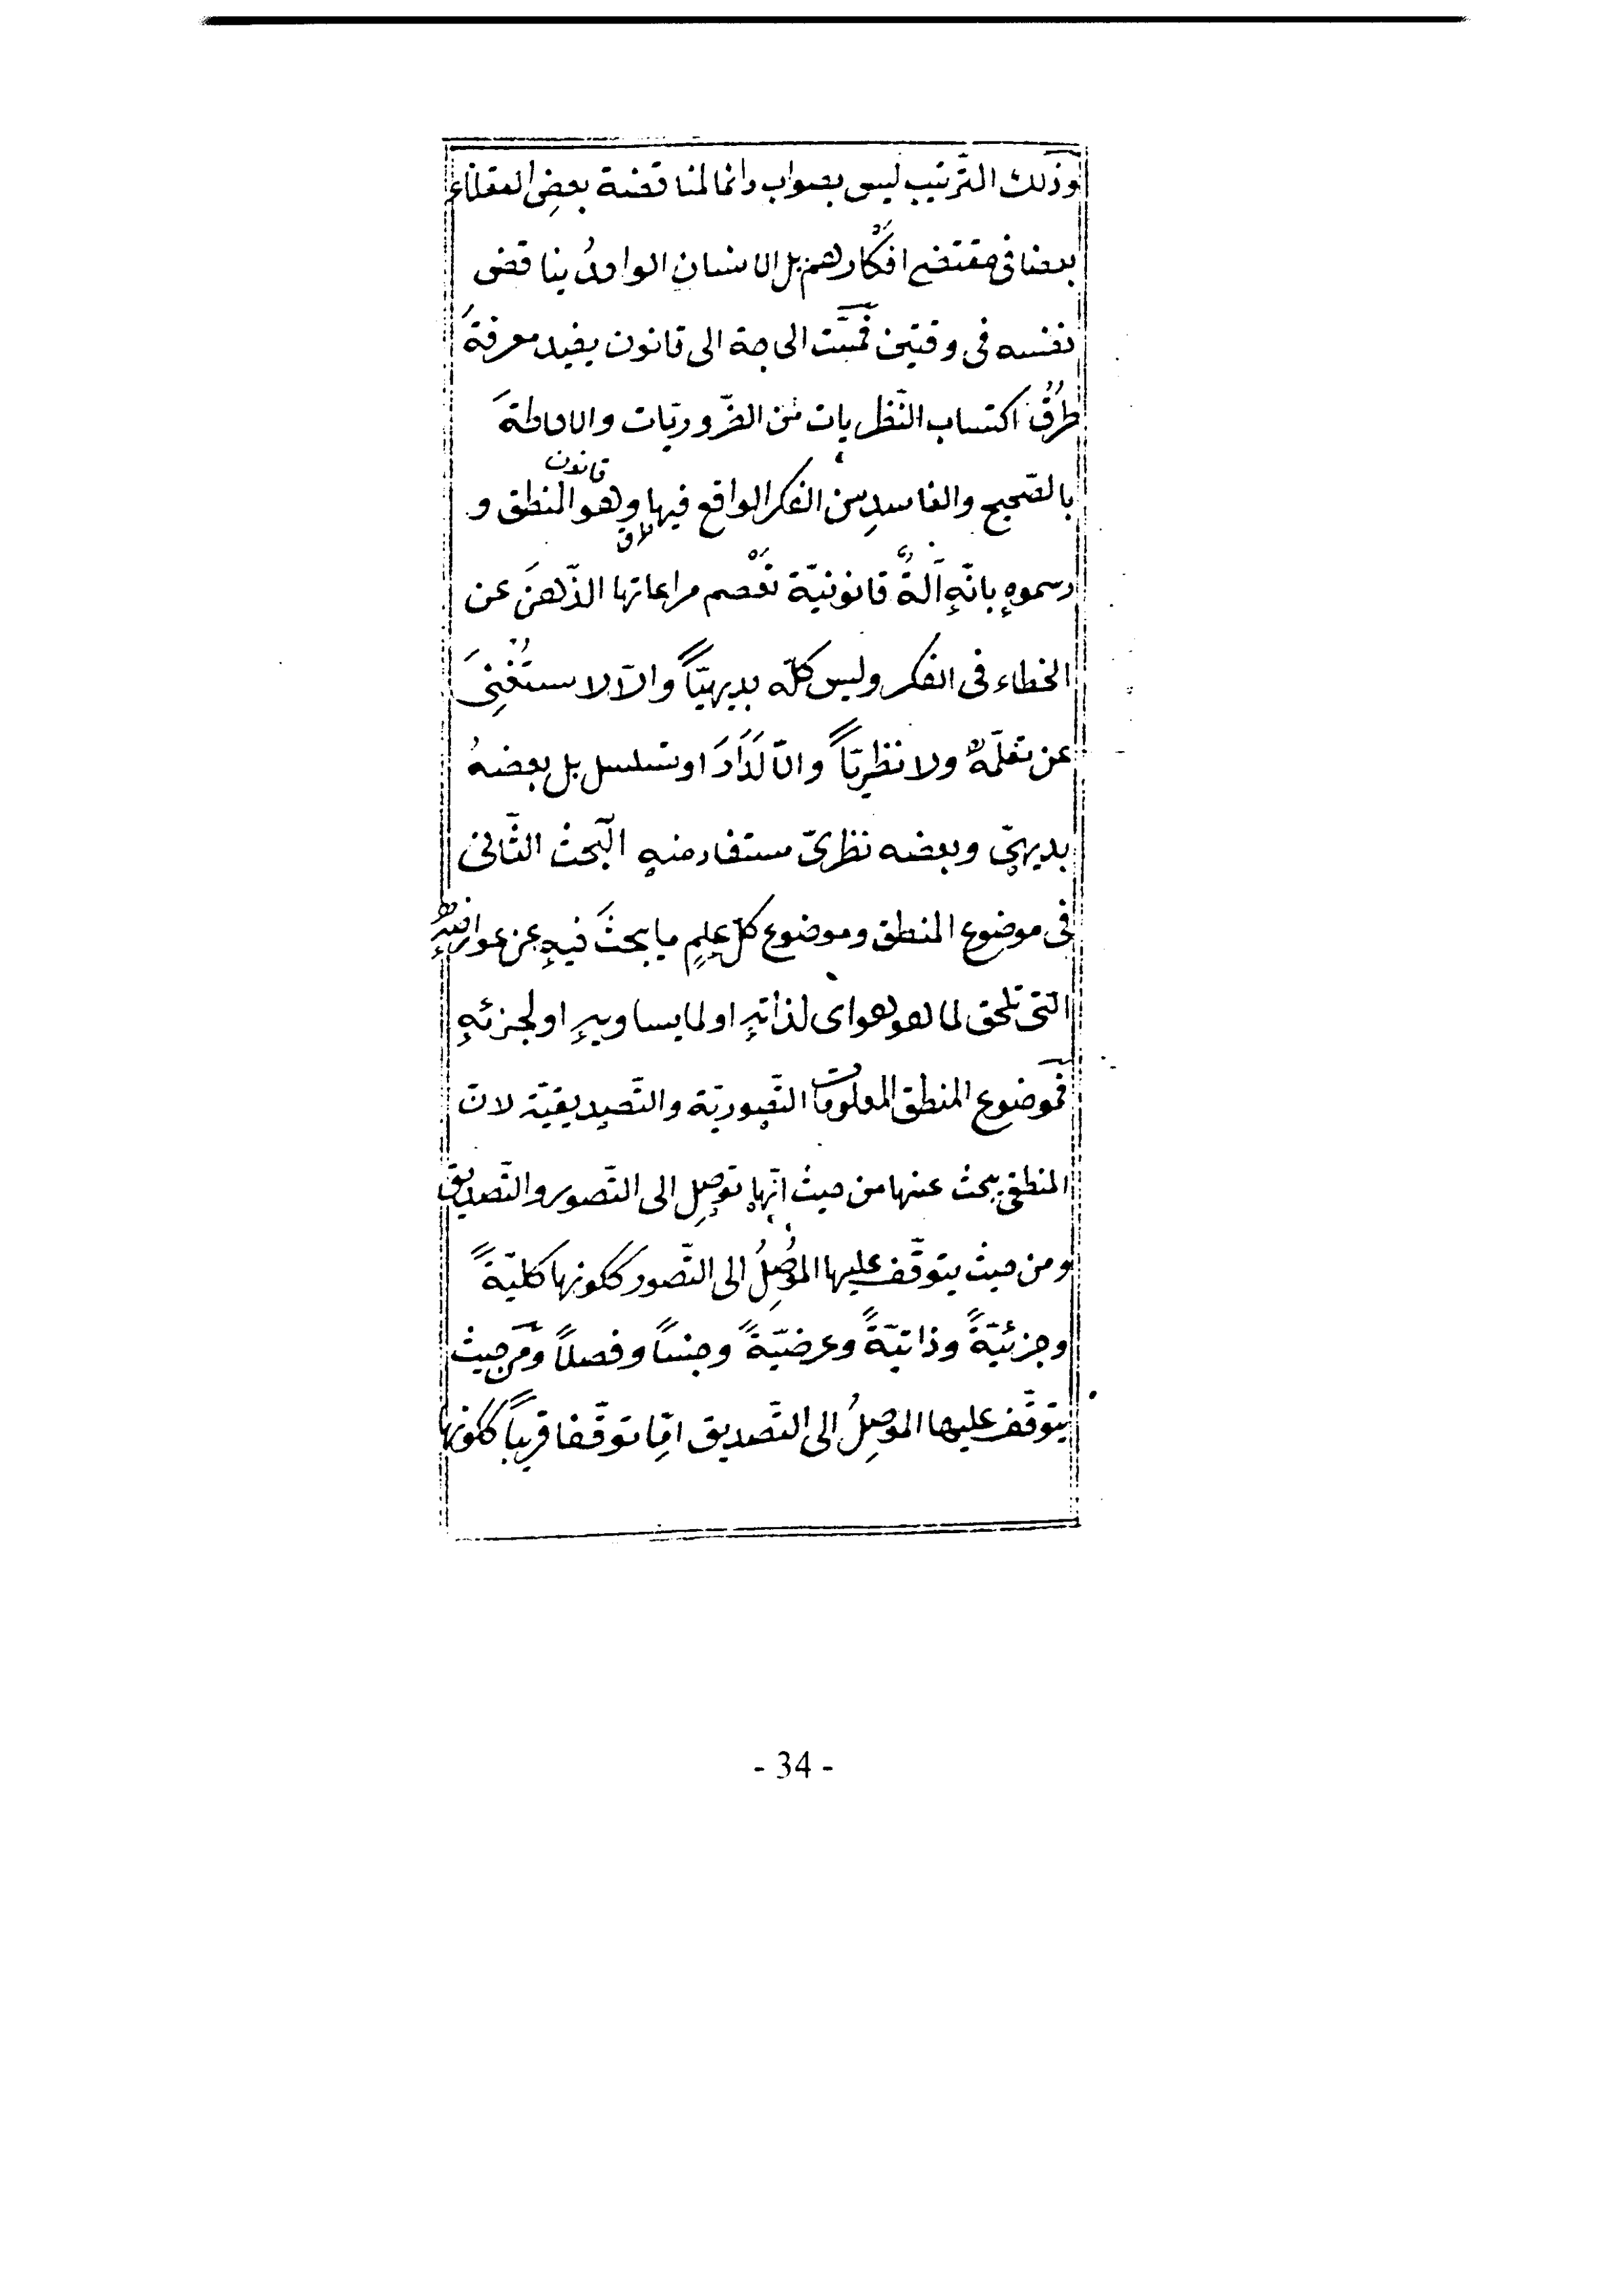 وذلك التّرتيب ليس بصواب دائما لمناقضة بعضِ العقلاء
بعضا فى مقتضى افكارهم بل الانسان الواحدُ يناقض
نفسه فى وقتين فمسّت الحاجة الى قانون يفيد معرفةَ
طُرُق اكتساب النّظريات من الضّروريّات والاحاطةَ
بالصّحيح والفاسدِ من الفكر الواقع فيها وهو المنطق و
قانون
رسموه بانّه آلةٌ قانونيّة تعْصم مراعاتها الذّهنَ عن
الخطاء فى الفكر وليس كلّه بديهيّاً والّا لاستُغْنِىَ
عن تعلّمه ولا نظريّاً والّا لَدَارَ او تسلسل بل بعضهُ
بديهىّ وبعضه نظرىّ مستفاد منهِ البحث الثّانى
فى موضوع المنطق وموضوع كلّ علمٍ ما يبحثَ فيهِ عن عوارضهِ
التى تلحق لما هو هو اى لذاتهِ او لما يساويهِ او لجزئهِ
فموضوع المنطق المعلومات التّصوريّة والتّصديقيّة لانّ
المنطقى يبحث عنها من حيث انّها توصِل الى التّصور والتّصديق
ومن حيث يتوقّف عليها الموُصِلُ الى التّصور ككونها كليّةً
وجزئيّةً وذاتيّةً وعرضيّةً وجنساً وفصلاً ومن حيث
يتوقّف عليها الموصِلُ الى التّصديق امّا توقّفا قريباً ككونها
- 34 -